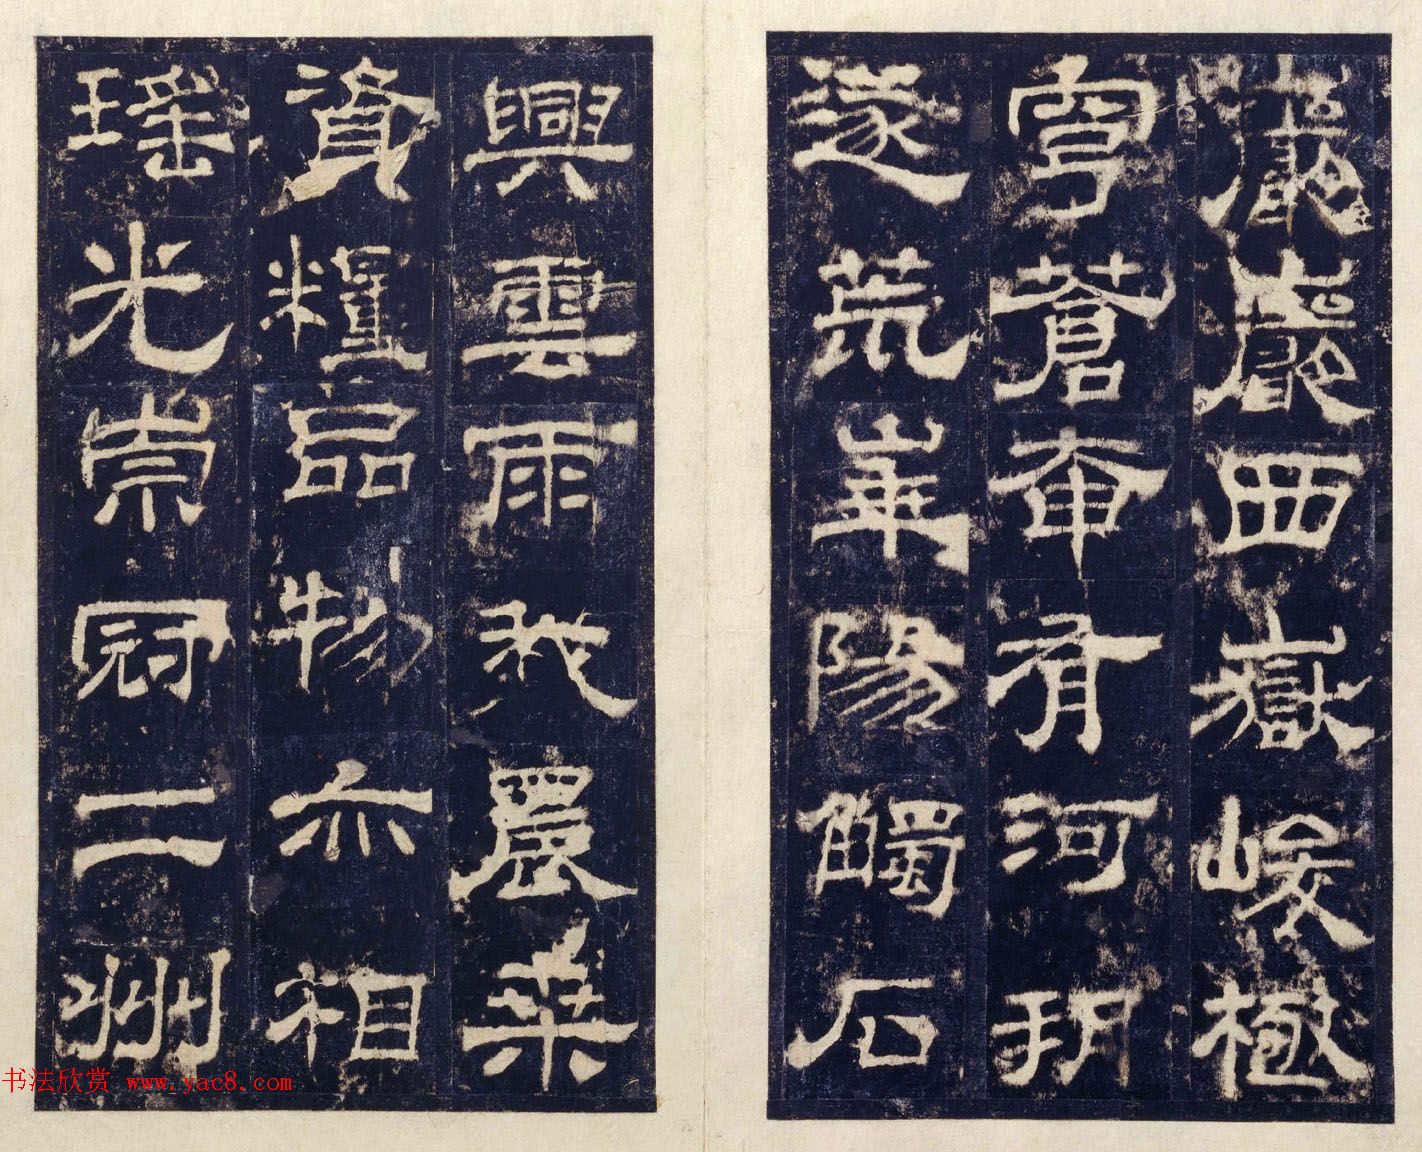 巖巖西嶽峻極
穹蒼奄有河朔
遂荒華陽觸石
興雲雨我農桑
資糧品物亦相
瑤光崇冠二州
书法欣赏 www.yac8.com